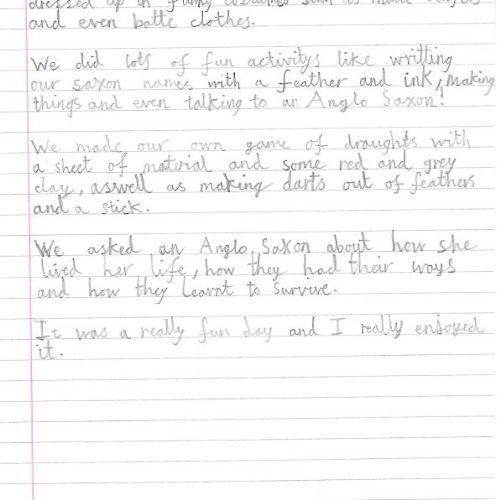 dressed up in funny costumes such as
and even batte clothes.
We did lots of fun activitys like writting
our saxon names with a feather and ink, making
things and even talking to an Anglo Saxon!
We made our own game of draughts with
a sheet of material and some red and grey
clay, aswell as making darts out of feathers
and a stick.
We asked an Anglo Saxon about how she
lived her life, how they had their ways
and how they learnt to survive.
It was a really fun day and I really enjoyed
it.